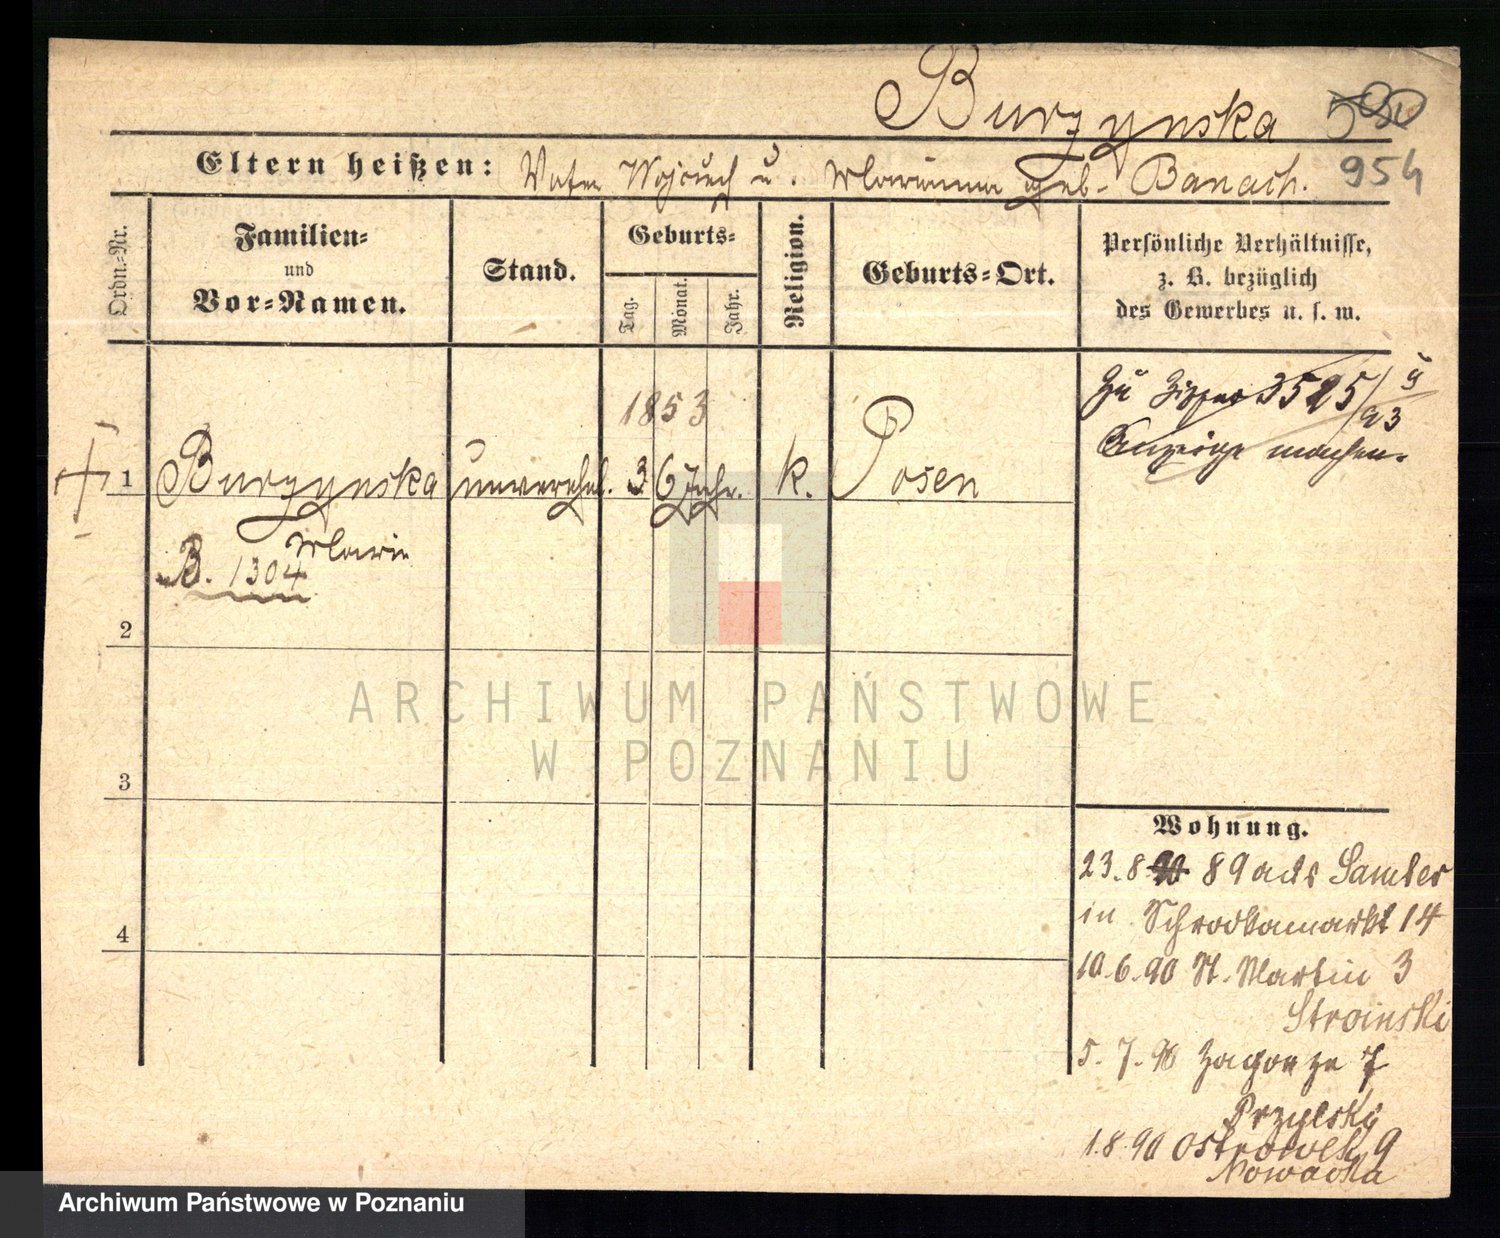 Burzynska
Eltern heißen: Vater Wojciech u. Marianna geb. Banach. 954
Ordn.-Nr.
Familien-
und
Vor-Namen.
Stand.
Geburts-
Tag.
Monat.
Jahr.
Religion.
Geburts-Ort.
Persönliche Verhältnisse,
z. B. bezüglich
des Gewerbes u. s. w.
Zu Ziffer 3595/93
Anzeige machen.
1853
1 Burzynska unverehel. 36 Jahr. k. Posen
Marie
B. 1304
2
3
4
Wohnung.
23.8 89 aus Samter
in Schrodkamarkt 14
10.6.90 St. Martin 3
Stroinski
5.7.90 Zagorze 7
Przylski
1.8.90 Ostrowek 9
Nowacka
ARCHIWUM PAŃSTWOWE
W POZNANIU
Archiwum Państwowe w Poznaniu